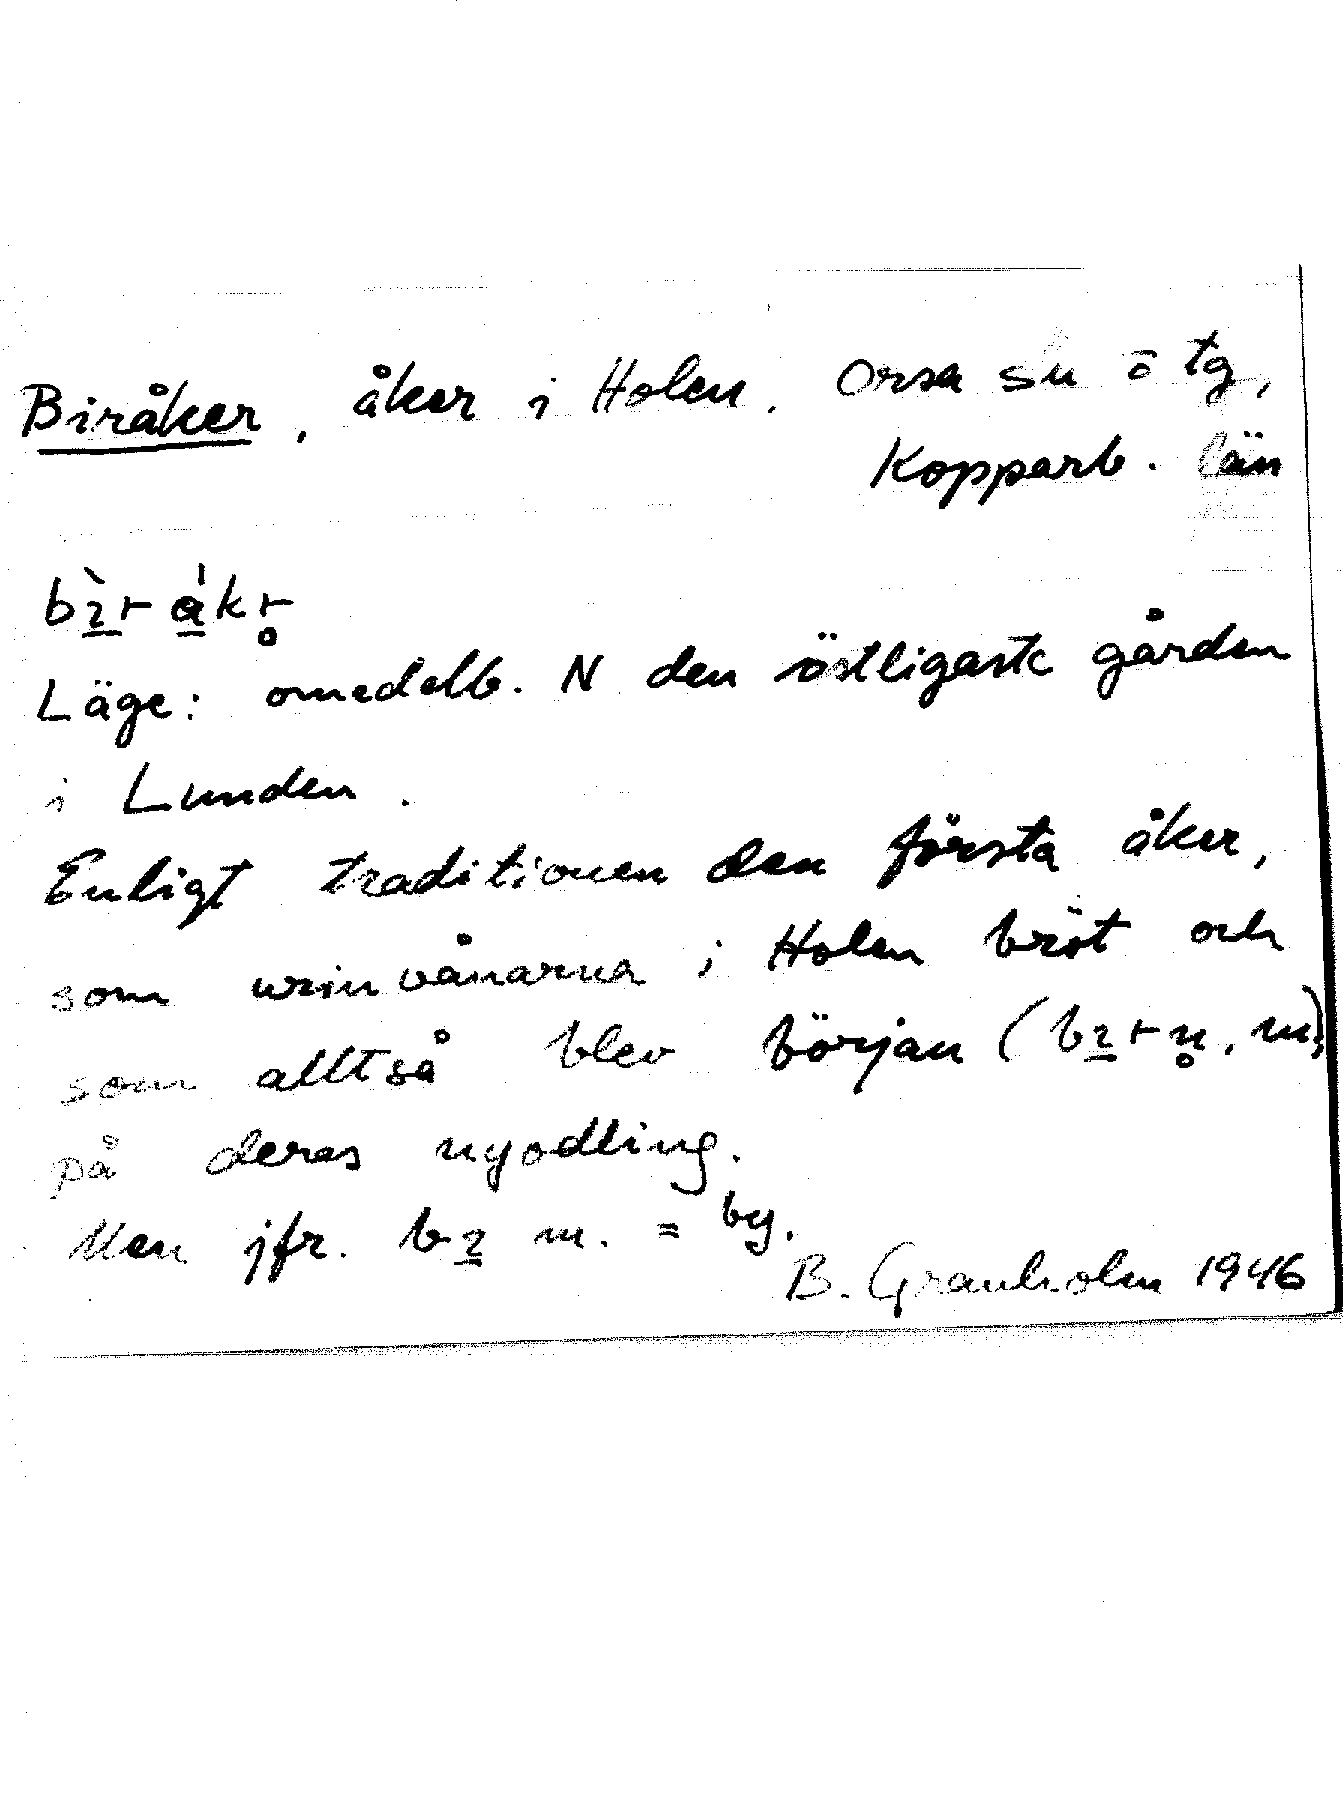 Biråker, åker i Holen. Orsa sn o tg,
Kopparb. län
bìr ákr̥
Läge: omedelb. N den östligaste gården
i Lunden.
Enligt traditionen den första åker,
som urinvånarna i Holen bröt och
som alltså blev början (birn̥, m.)
på deras nyodling.
Men jfr. bi m. = by.
B. Granholm 1946